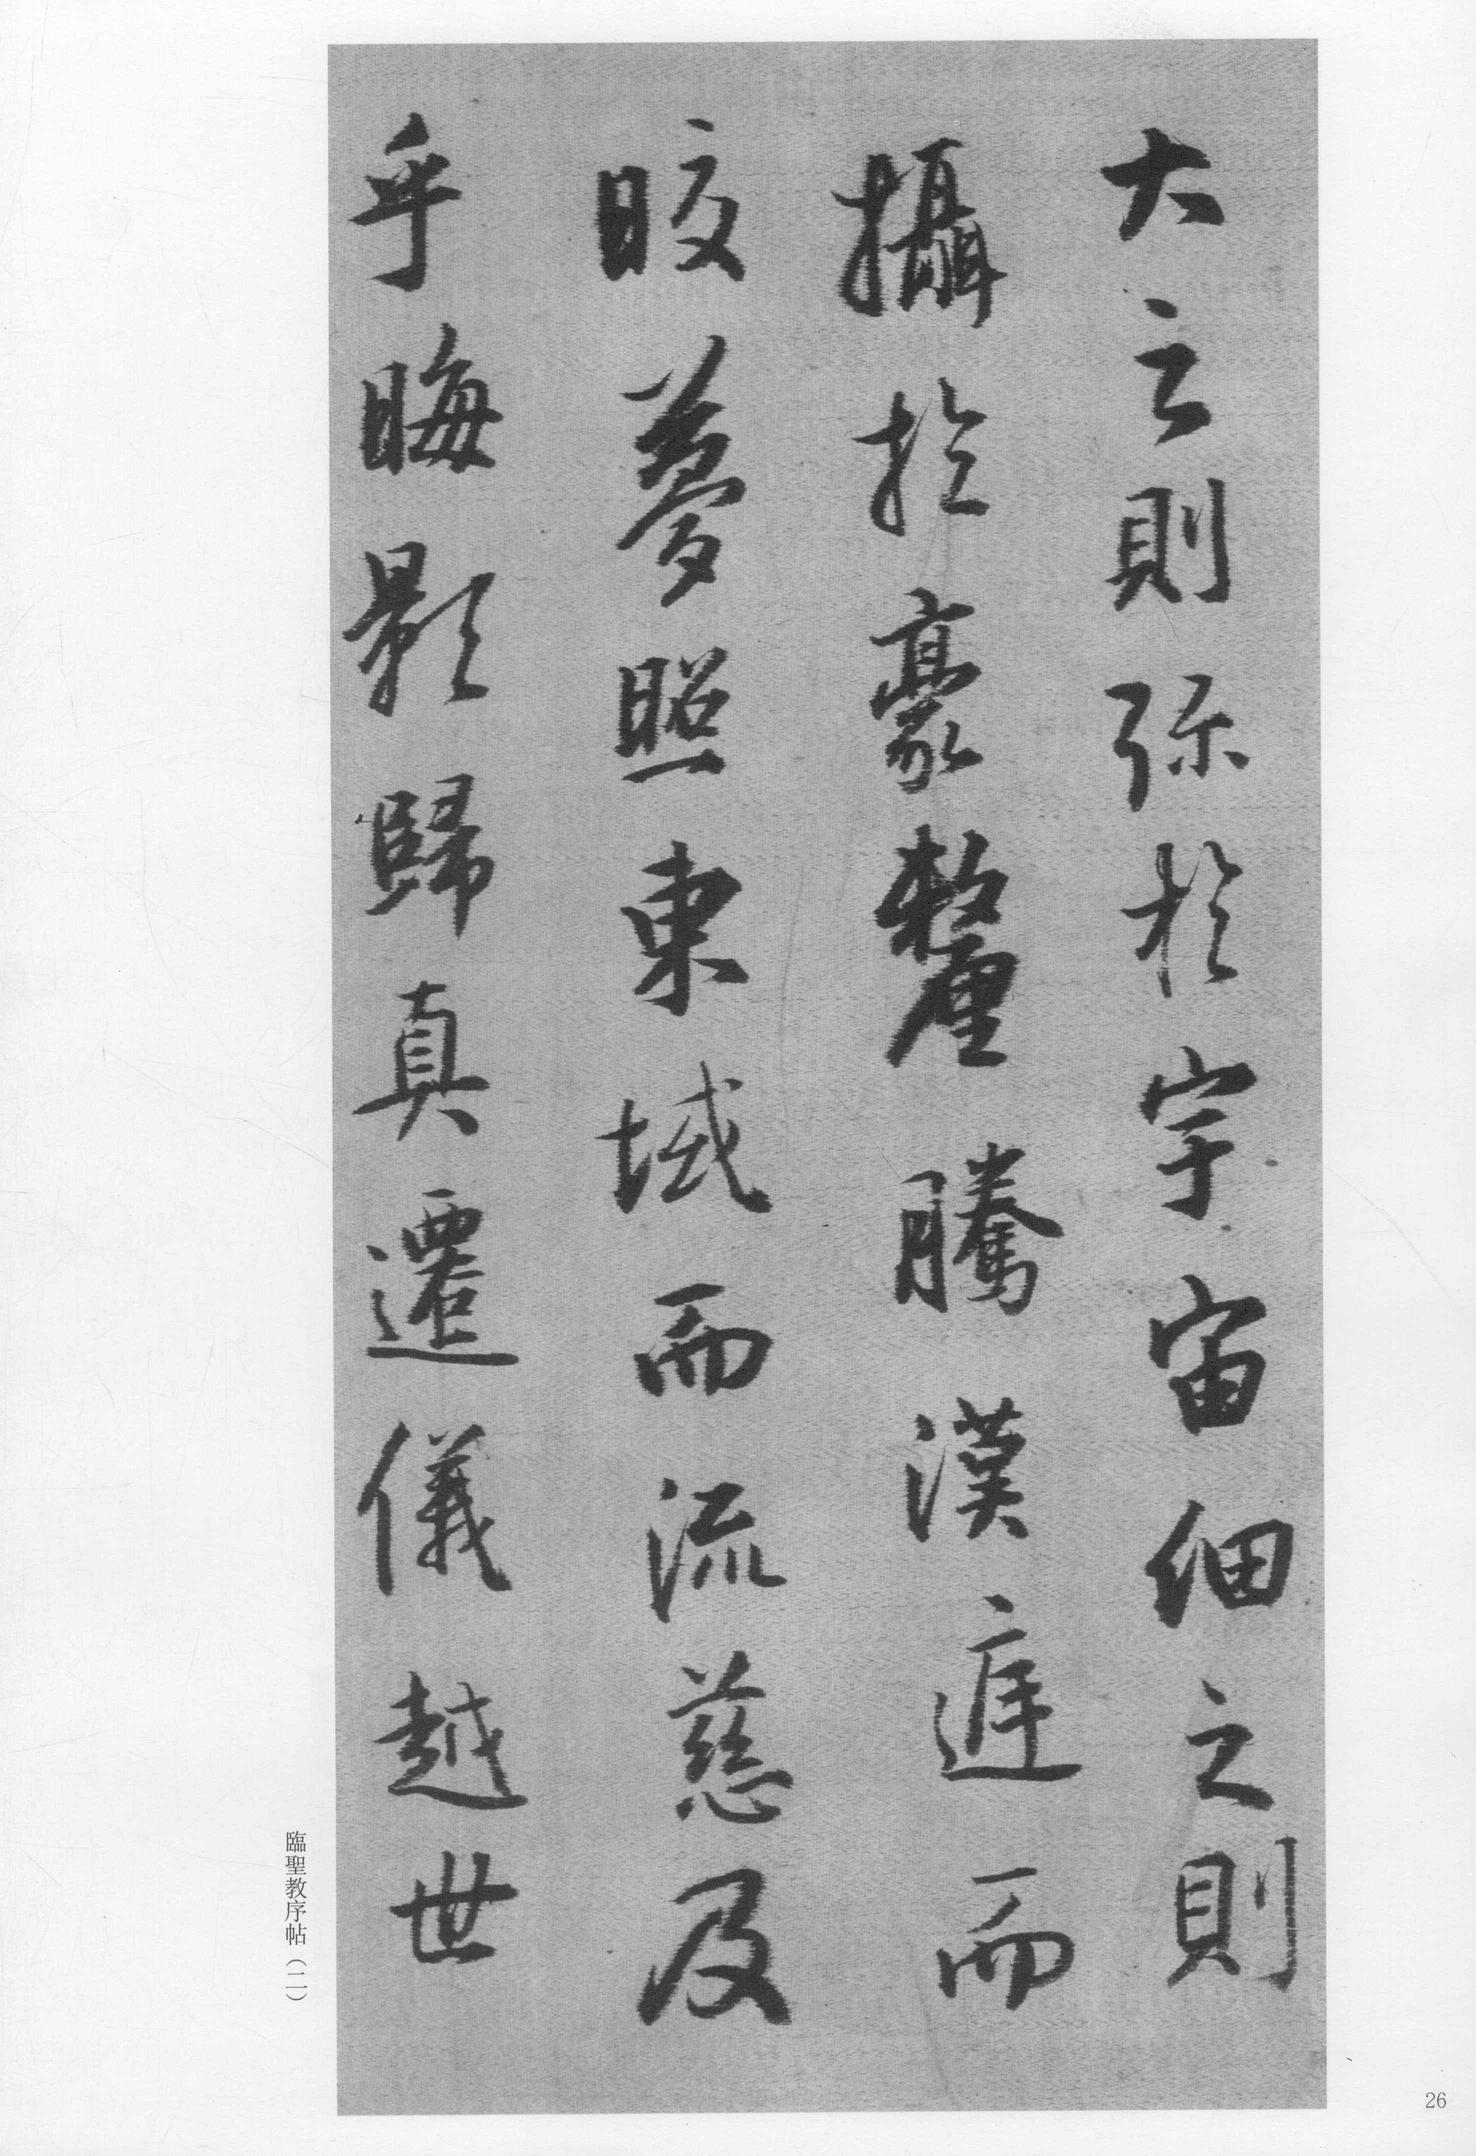 大之則弥於宇宙細之則
攝於豪釐騰漢遅而
晈夢照東域而流慈及
乎晦影歸真遷儀越世
臨聖教序帖（二）
26